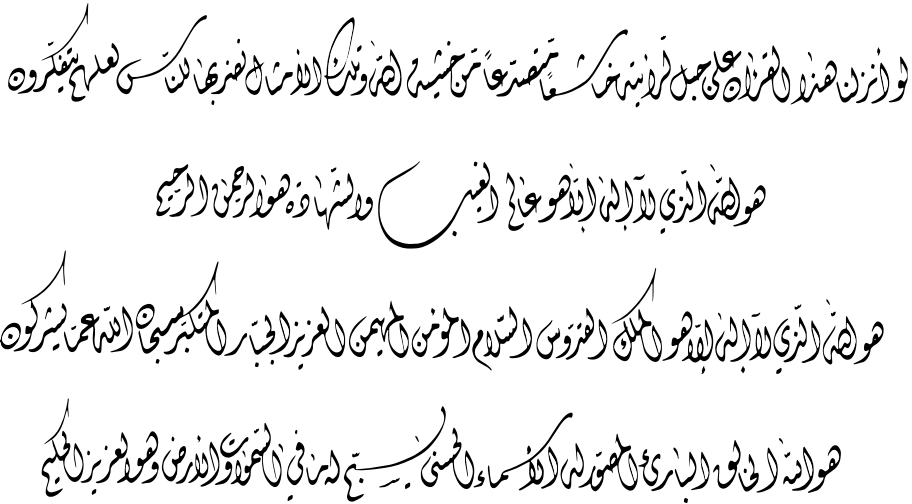 لو أنزلنا هذا القرآن على جبل لرأيته خاشعاً متصدعاً من خشية الله وتلك الأمثال نضربها للناس لعلهم يتفكرون
هو الله الذي لا اله إلا هو عالم الغيب والشهادة هو الرحمن الرحيم
هو الله الذي لا اله إلا هو الملك القدوس السلام المؤمن المهيمن العزيز الجبار المتكبر سبحان الله عما يشركون
هو الله الخالق البارئ المصور له الأسماء الحسنى يسبح له ما في السموات والارض وهو العزيز الحكيم